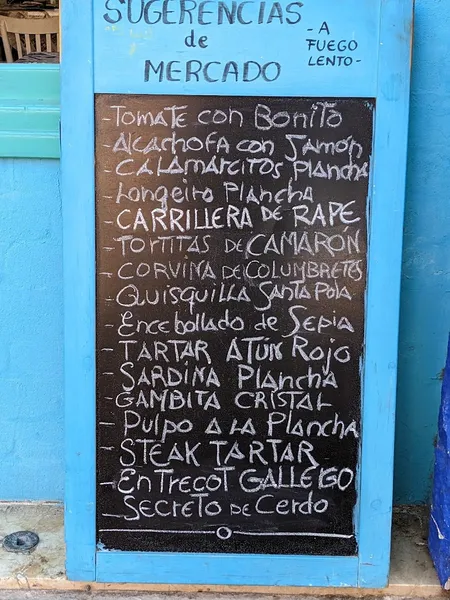 SUGERENCIAS
de
MERCADO
- A
FUEGO
LENTO-
-Tomate con Bonito
-Alcachofa con Jamón
-CALAMARCITOS Plancha
-Longeiro Plancha
-CARRILLERA DE RAPE
-TORTITAS DE CAMARÓN
-CORVINA DE COLUMBRETES
-Quisquilla Santa Pola
-Encebollado de Sepia
-TARTAR ATÚN Rojo
-SARDINA Plancha
-GAMBITA CRISTAL
-Pulpo A LA Plancha
-STEAK TARTAR
-EnTrecoT GALLEGO
-Secreto DE Cerdo